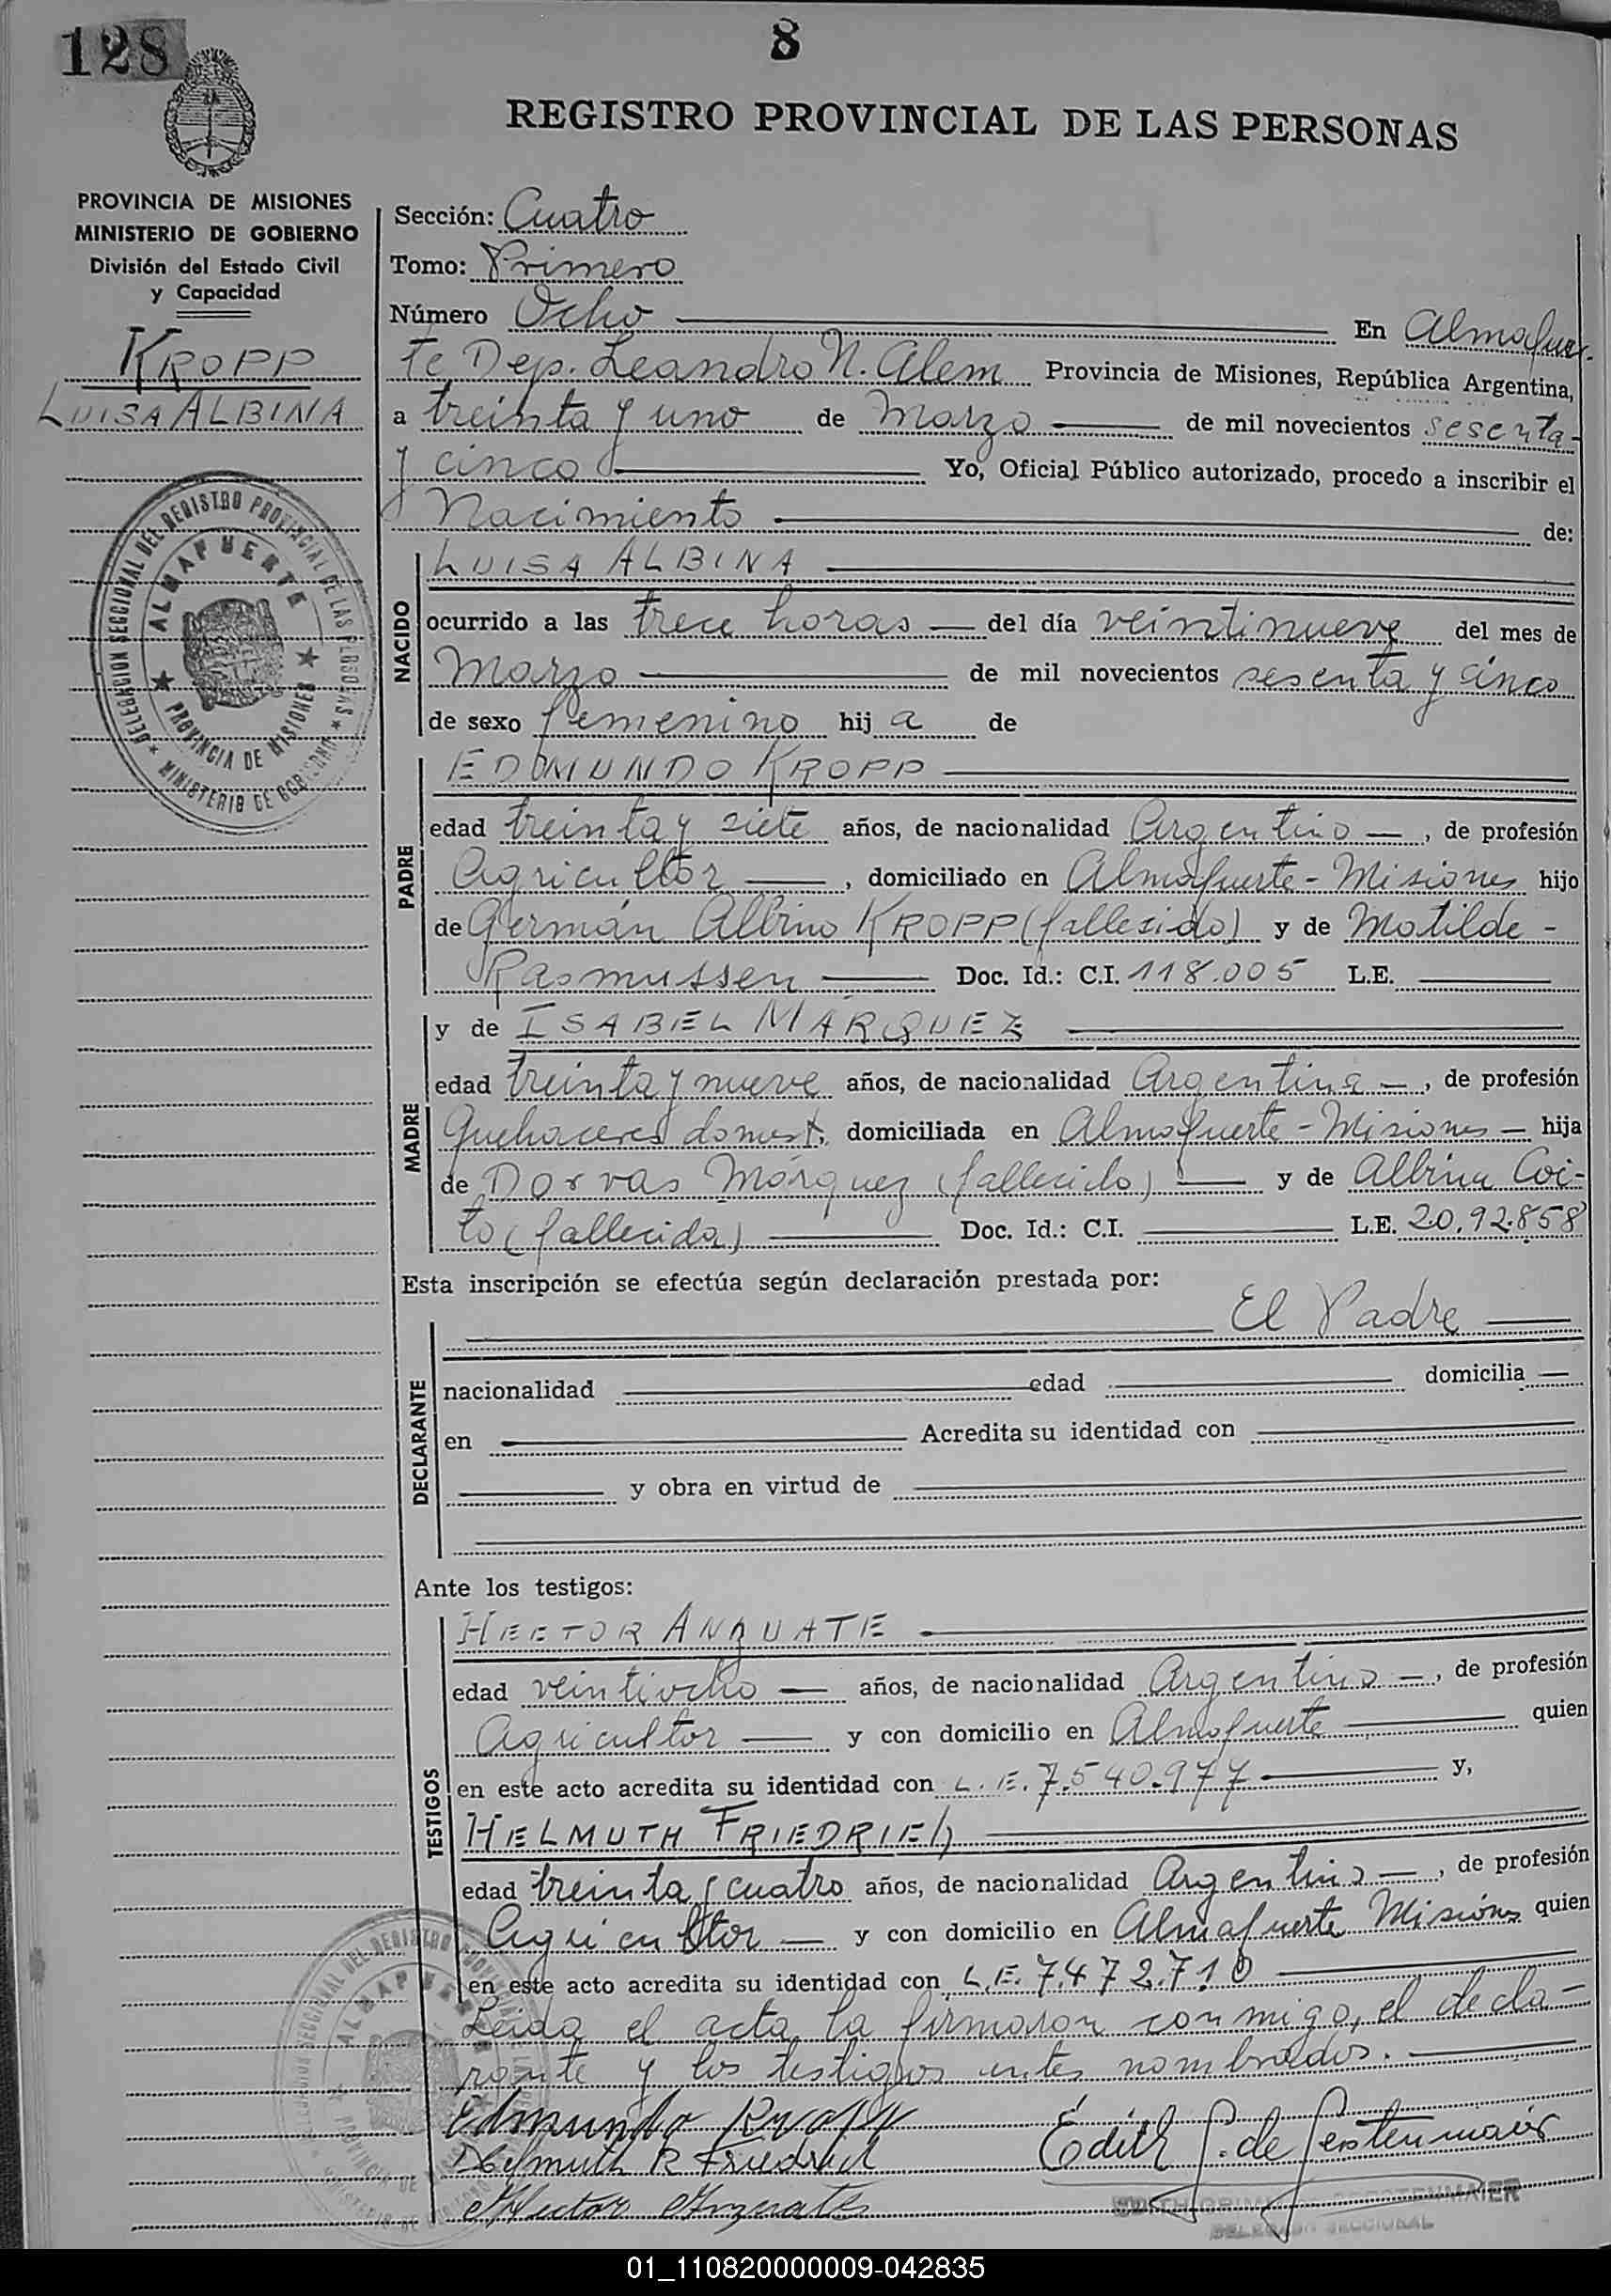 128
8
REGISTRO PROVINCIAL DE LAS PERSONAS
PROVINCIA DE MISIONES
MINISTERIO DE GOBIERNO
División del Estado Civil
y Capacidad
KROPP
LUISA ALBINA
DELEGACION SECCIONAL DEL REGISTRO PROVINCIAL DE LAS PERSONAS
ALMAFUERTE
PROVINCIA DE MISIONES
MINISTERIO DE GOBIERNO
Sección: Cuatro
Tomo: Primero
Número Ocho En Almafuer-
te Dep. Leandro N. Alem Provincia de Misiones, República Argentina,
a treinta y uno de Marzo de mil novecientos sesenta
y cinco Yo, Oficial Público autorizado, procedo a inscribir el
Nacimiento de:
NACIDO
LUISA ALBINA
ocurrido a las trece horas del día veintinueve del mes de
Marzo de mil novecientos sesenta y cinco
de sexo femenino hij a de
PADRE
EDMUNDO KROPP
edad treinta y siete años, de nacionalidad Argentino, de profesión
Agricultor, domiciliado en Almafuerte - Misiones hijo
de Germán Albino KROPP (fallecido) y de Matilde -
Rasmussen Doc. Id.: C.I. 118.005 L.E.
MADRE
y de ISABEL MARQUEZ
edad treinta y nueve años, de nacionalidad Argentina, de profesión
Quehaceres domest. domiciliada en Almafuerte - Misiones - hija
de Dorvas Márquez (fallecido) y de Albina Coi-
to (fallecida) Doc. Id.: C.I. L.E. 20.92.858
Esta inscripción se efectúa según declaración prestada por:
El Padre
DECLARANTE
nacionalidad edad domicilia
en Acredita su identidad con
y obra en virtud de
Ante los testigos:
TESTIGOS
HECTOR
edad veintiocho años, de nacionalidad Argentino, de profesión
Agricultor y con domicilio en Almafuerte quien
en este acto acredita su identidad con L.E. 7.540.977 y,
HELMUTH FRIEDRICH
edad treinta y cuatro años, de nacionalidad Argentino, de profesión
Agricultor y con domicilio en Almafuerte Misiones quien
en este acto acredita su identidad con L.E. 7.472.710
Leida el acta, la firmaron conmigo, el decla-
rante y los testigos antes nombrados.
Edmundo Kropp
Helmuth R Friedrich
Edith G. de Gerstenmaier
Hector
DELEGADA SECCIONAL
01_110820000009-042835